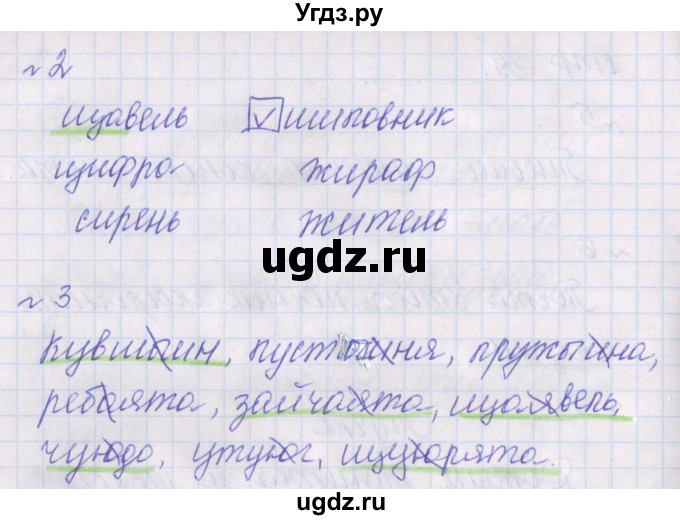 Угдз.ру
№2
щавель ✓ шиповник
цифра жираф
сирень житель
ugdz.ru
№3
Кувшыин, пустыиня, пружыина,
ребаята, зайчаята, щаявель,
чуюдо, утуюг, щуюрята.
ugdz.ru